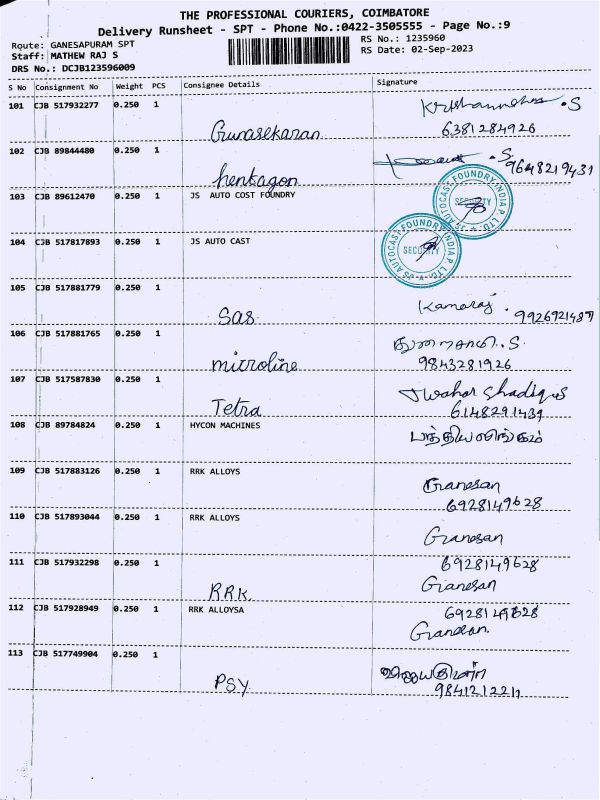 THE PROFESSIONAL COURIERS, COIMBATORE
Delivery Runsheet - SPT - Phone No.:0422-3505555 - Page No.:9
Route: GANESAPURAM SPT
RS No.: 1235960
Staff: MATHEW RAJ S
RS Date: 02-Sep-2023
DRS No.: DCJB123596009
S No Consignment No Weight PCS Consignee Details Signature
101 CJB 517932277 0.250 1
Gunasekaran
6381284926
102 CJB 89844480 0.250 1
hentagon
9648219431
103 CJB 89612470 0.250 1 JS AUTO COST FOUNDRY
JS AUTOCAST FOUNDRY INDIA P. LTD
SECURITY
104 CJB 517817893 0.250 1 JS AUTO CAST
JS AUTOCAST FOUNDRY INDIA P. LTD
SECURITY
105 CJB 517881779 0.250 1
Sas
Kamaraj
9926921487
106 CJB 517881765 0.250 1
microline
துரைசாமி. S
9843281926
107 CJB 517587830 0.250 1
Tetra
Jwahar Shadiqus
6148291439
108 CJB 89784824 0.250 1 HYCON MACHINES
109 CJB 517883126 0.250 1 RRK ALLOYS
Ganesan
6928149628
110 CJB 517893044 0.250 1 RRK ALLOYS
Ganesan
6928149628
111 CJB 517932298 0.250 1
RRK
Ganesan
6928149628
112 CJB 517928949 0.250 1 RRK ALLOYSA
Ganesan.
113 CJB 517749904 0.250 1
PSY
9841212211